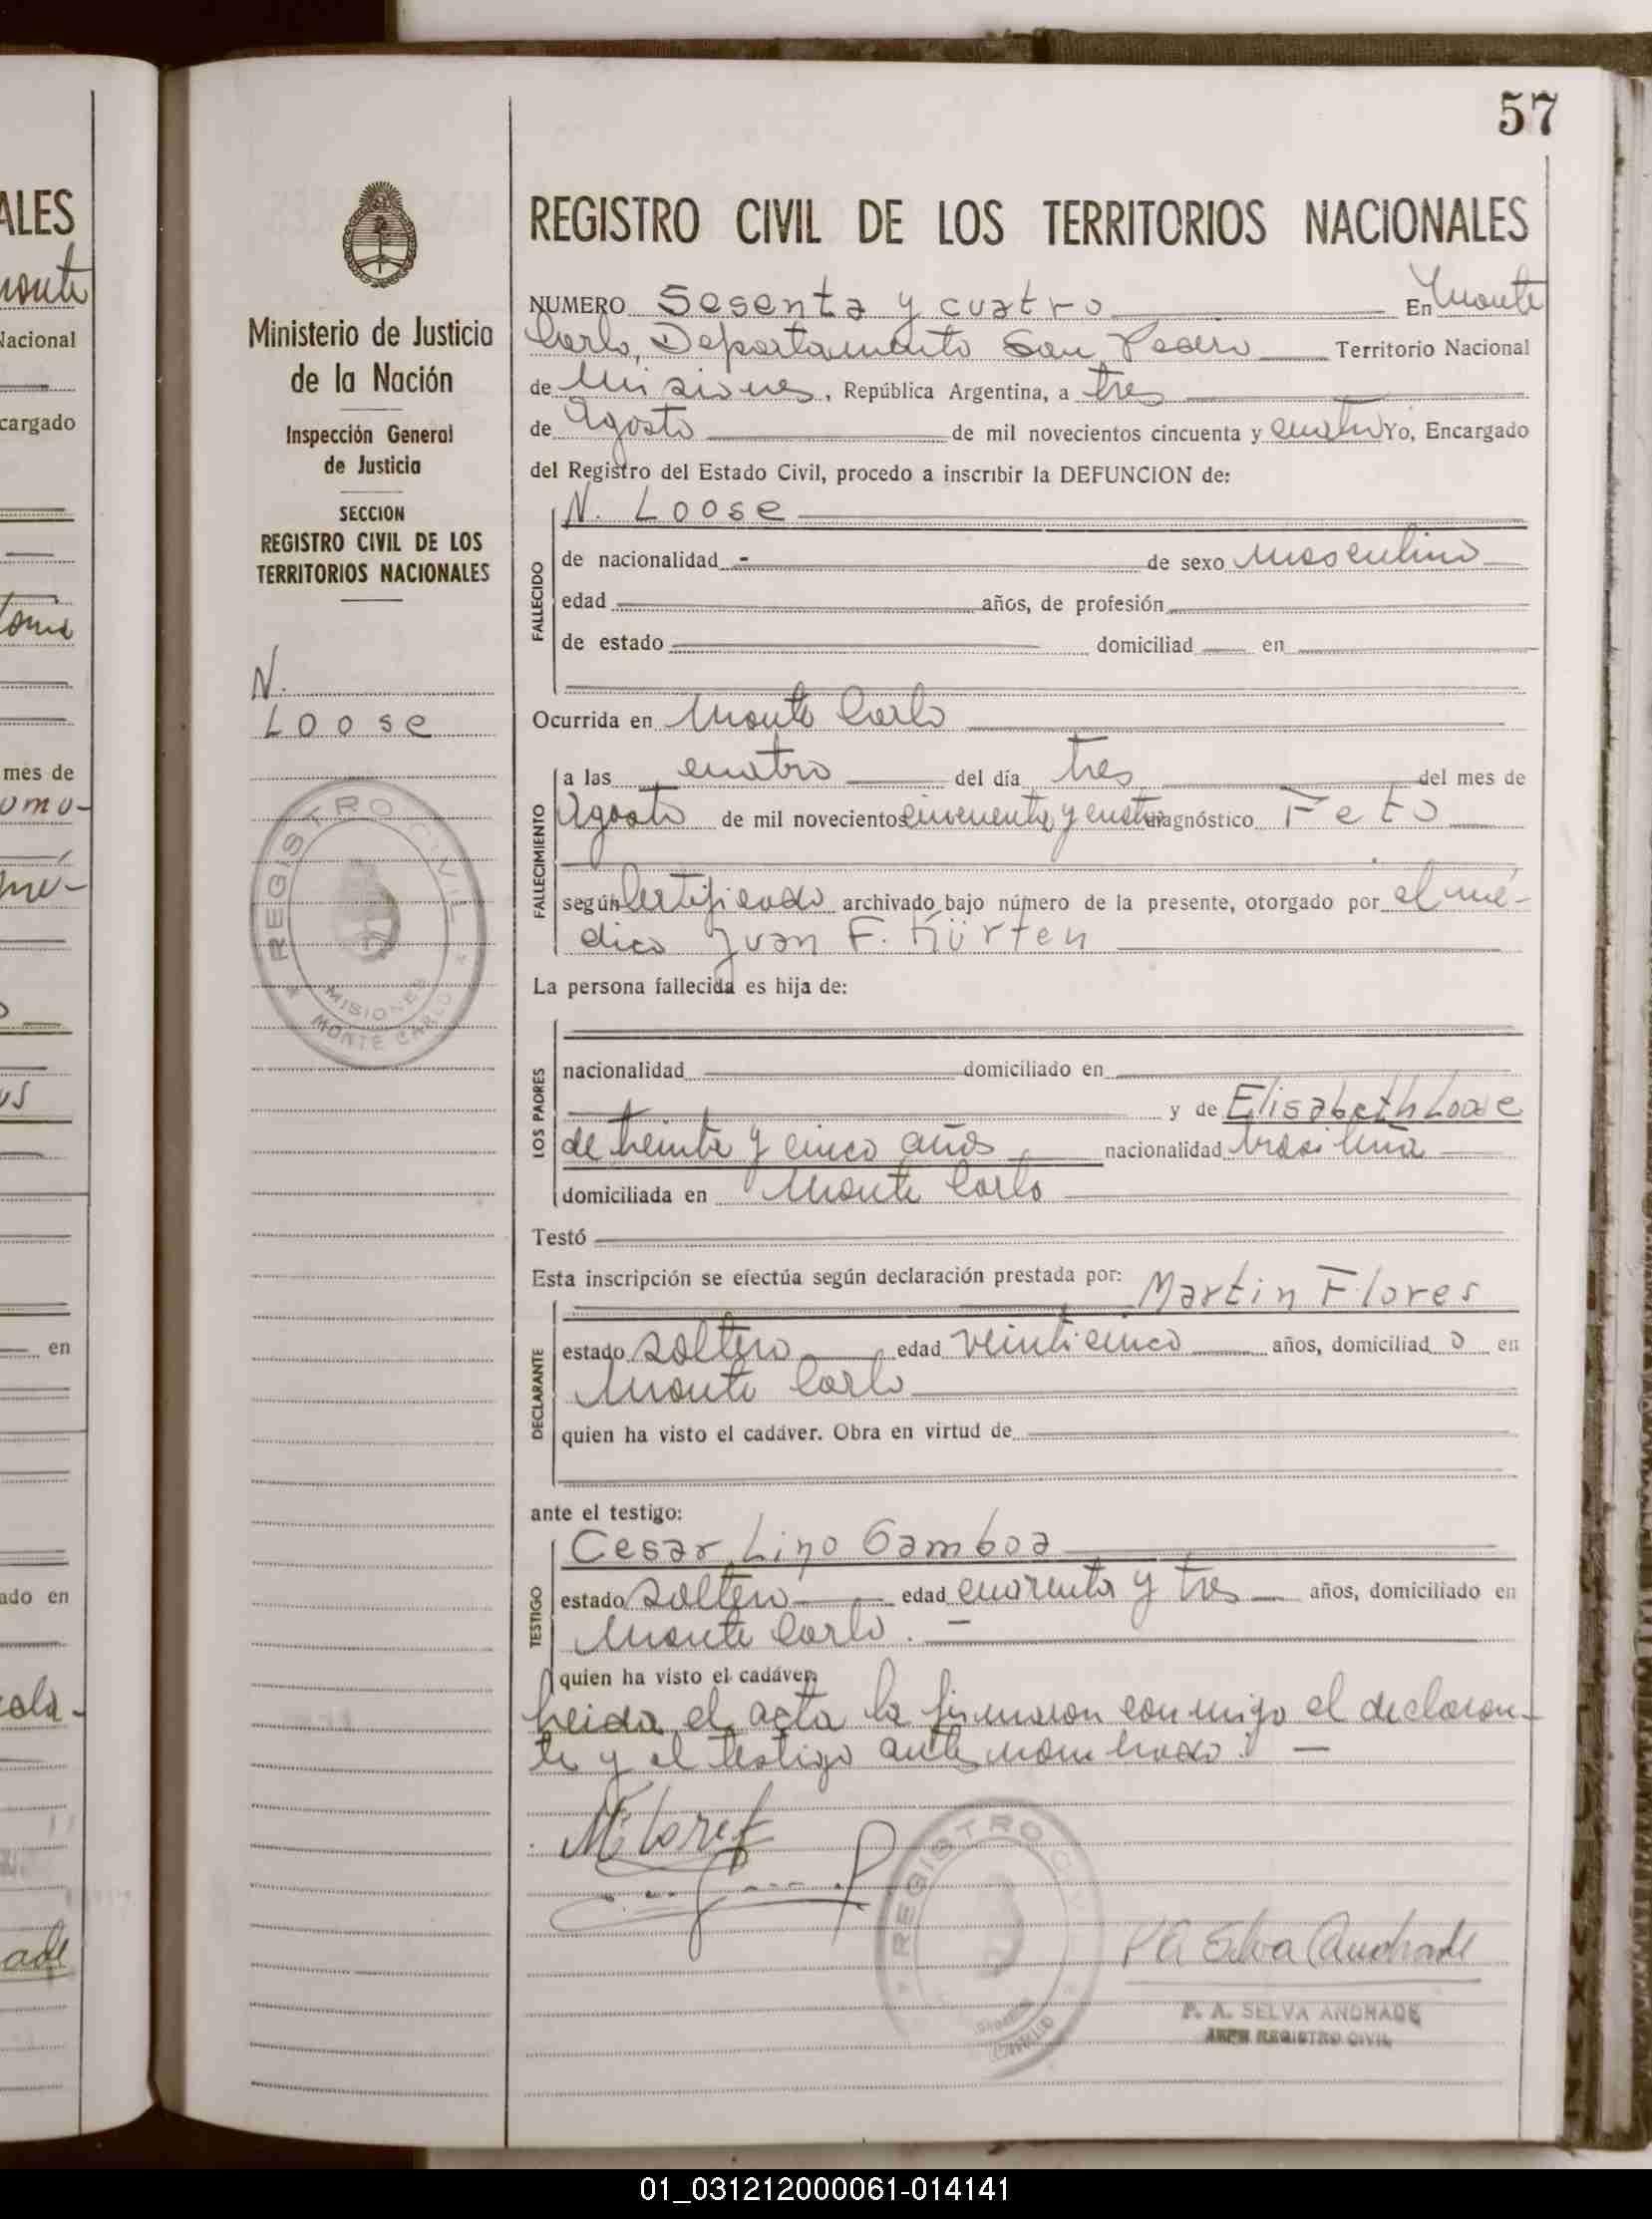 57
ALES
monte
Nacional
cargado
mes de
en
ado en
Ministerio de Justicia
de la Nación
Inspección General
de Justicia
SECCION
REGISTRO CIVIL DE LOS
TERRITORIOS NACIONALES
N.
Loose
REGISTRO CIVIL
MISIONES
MONTE CARLO
REGISTRO CIVIL DE LOS TERRITORIOS NACIONALES
NUMERO Sesenta y cuatro En Monte
Carlo, Departamento San Pedro Territorio Nacional
de Misiones, República Argentina, a tres
de Agosto de mil novecientos cincuenta y cuatro Yo, Encargado
del Registro del Estado Civil, procedo a inscribir la DEFUNCION de:
N. Loose
FALLECIDO
de nacionalidad - de sexo masculino
edad años, de profesión
de estado domiciliad en
Ocurrida en Monte Carlo
FALLECIMIENTO
a las cuatro del día tres del mes de
Agosto de mil novecientos cincuenta y cuatro diagnóstico Feto
según Certificado archivado bajo número de la presente, otorgado por el mé-
dico Juan F. Kürten
La persona fallecida es hija de:
LOS PADRES
nacionalidad domiciliado en
y de Elisabeth Loose
de treinta y cinco años nacionalidad brasileña
domiciliada en Monte Carlo
Testó
Esta inscripción se efectúa según declaración prestada por:
Martin Flores
DECLARANTE
estado soltero edad veinticinco años, domiciliad o en
Monte Carlo
quien ha visto el cadáver. Obra en virtud de
ante el testigo:
Cesar Lino Gamboa
TESTIGO
estado soltero edad cuarenta y tres años, domiciliado en
Monte Carlo. -
quien ha visto el cadáver.
Leida el acta la firmaron conmigo el declaran-
te y el testigo antes nombrado. -
REGISTRO
P A Selva Andrade
P. A. SELVA ANDRADE
JEFE REGISTRO CIVIL
01_031212000061-014141